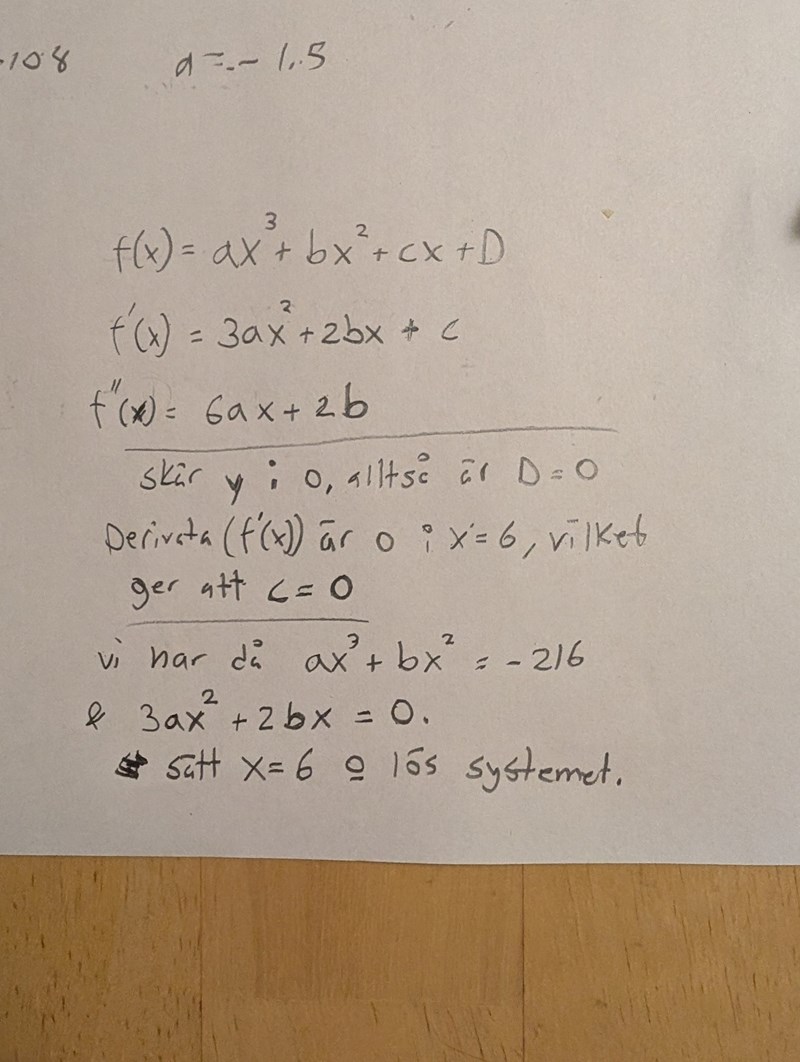 ·108 a = - 1.5
f(x) = ax³ + bx² + cx + D
f'(x) = 3ax² + 2bx + c
f''(x) = 6ax + 2b
skär y i 0, alltså är D = 0
Derivata (f'(x)) är 0 i x = 6, vilket
ger att c = 0
vi har då ax³ + bx² = -216
& 3ax² + 2bx = 0.
sätt x = 6 o lös systemet.